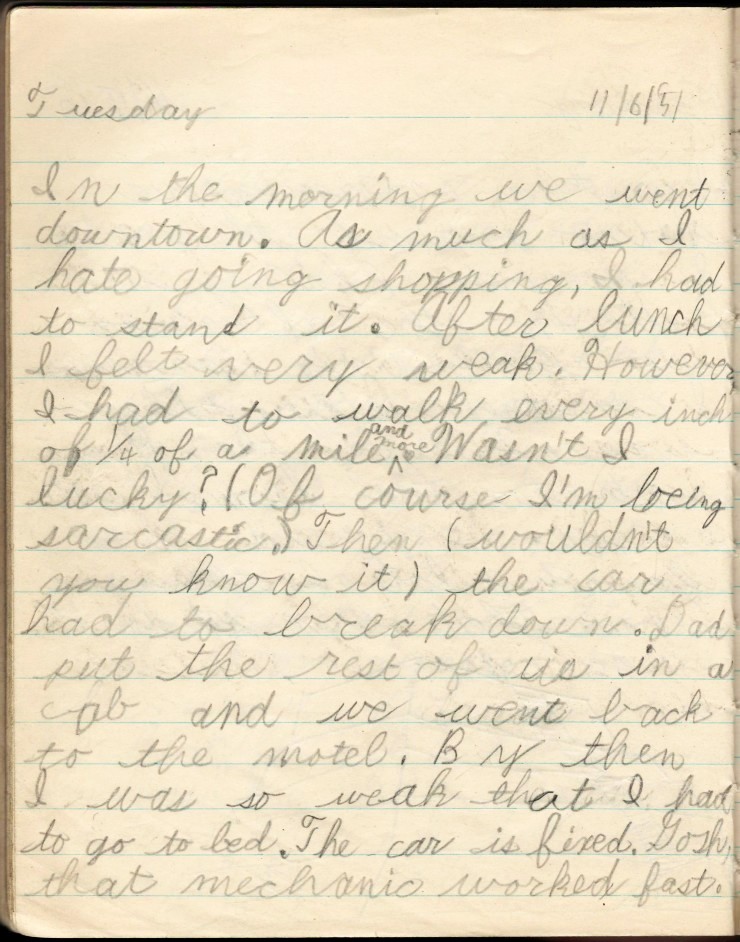 Tuesday 11/6/51
In the morning we went
downtown. As much as I
hate going shopping, I had
to stand it. After lunch
I felt very weak. However
I had to walk every inch
of 1/4 of a mile and more. Wasn't I
lucky? (Of course I'm being
sarcastic.) Then (wouldn't
you know it) the car
had to break down. Dad
put the rest of us in a
cab and we went back
to the motel. By then
I was so weak that I had
to go to bed. The car is fixed. Gosh,
that mechanic worked fast.